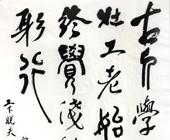 古人學
壯工老始
終覺淺
躬行